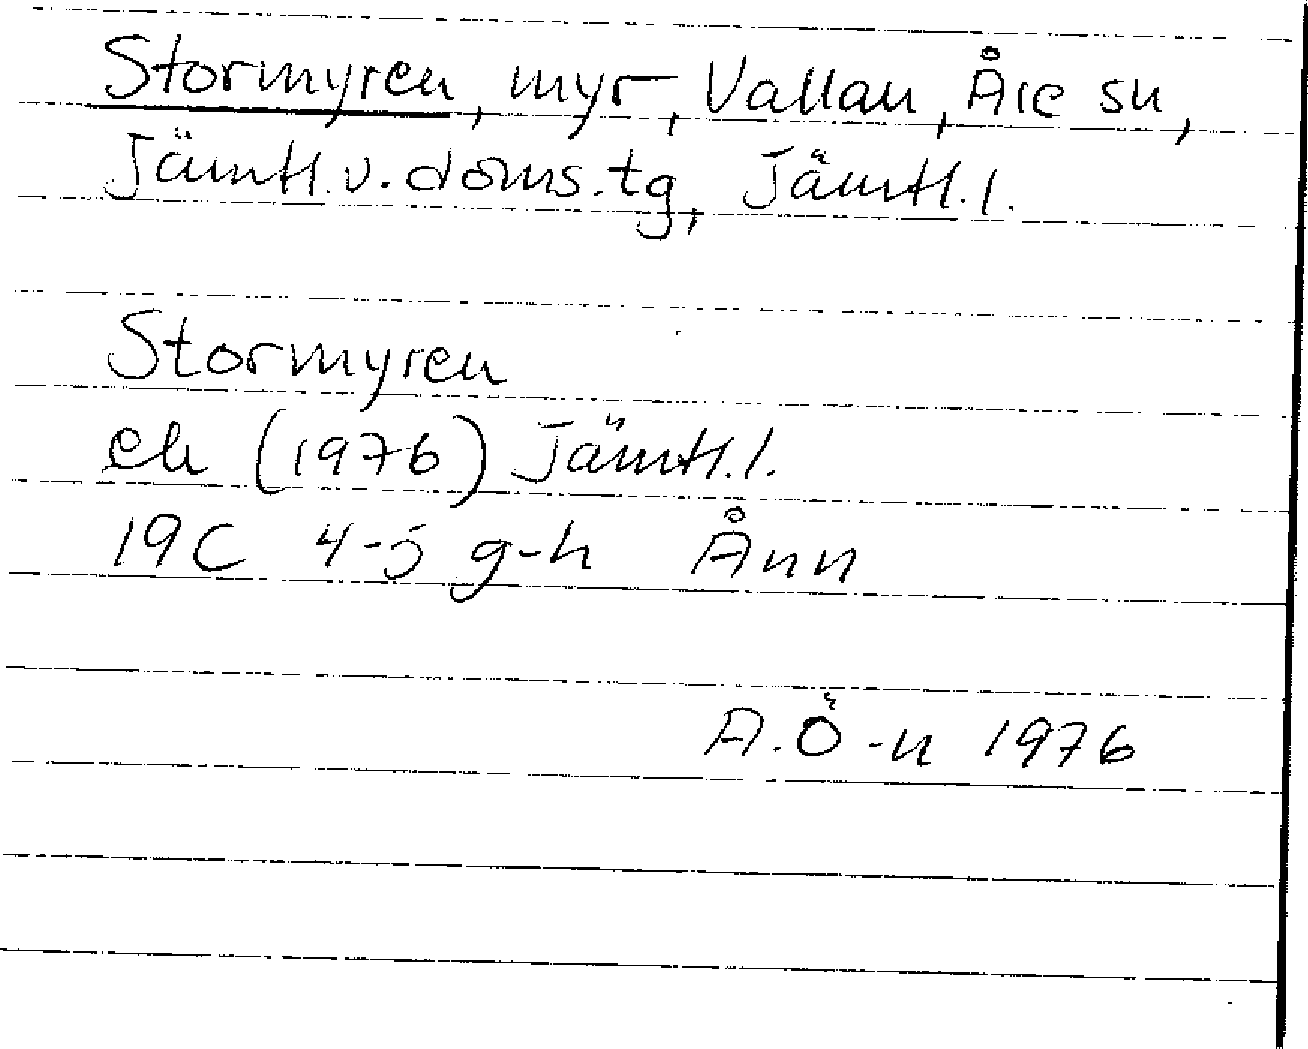 Stormyren, myr, Vallan, Åre sn,
Jämtl.v.doms.tg, Jämtl.l.
Stormyren
ek (1976) Jämtl.l.
19C 4-5 g-h Ånn
A.Ö-n 1976